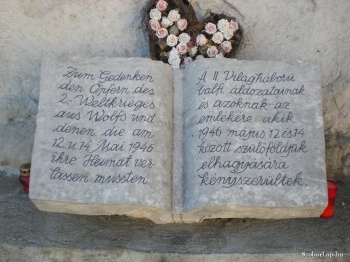 Zum Gedenken
den Opfern des
2. Weltkrieges
aus Wolfs und
denen die am
12. u. 14. Mai 1946
ihre Heimat ver-
lassen mussten.
A II. Világháború
balfi áldozatainak
és azoknak az
emlékére akik
1946 május 12 és 14
között szülőföldjük
elhagyására
kényszerültek.
SzoborLap.hu